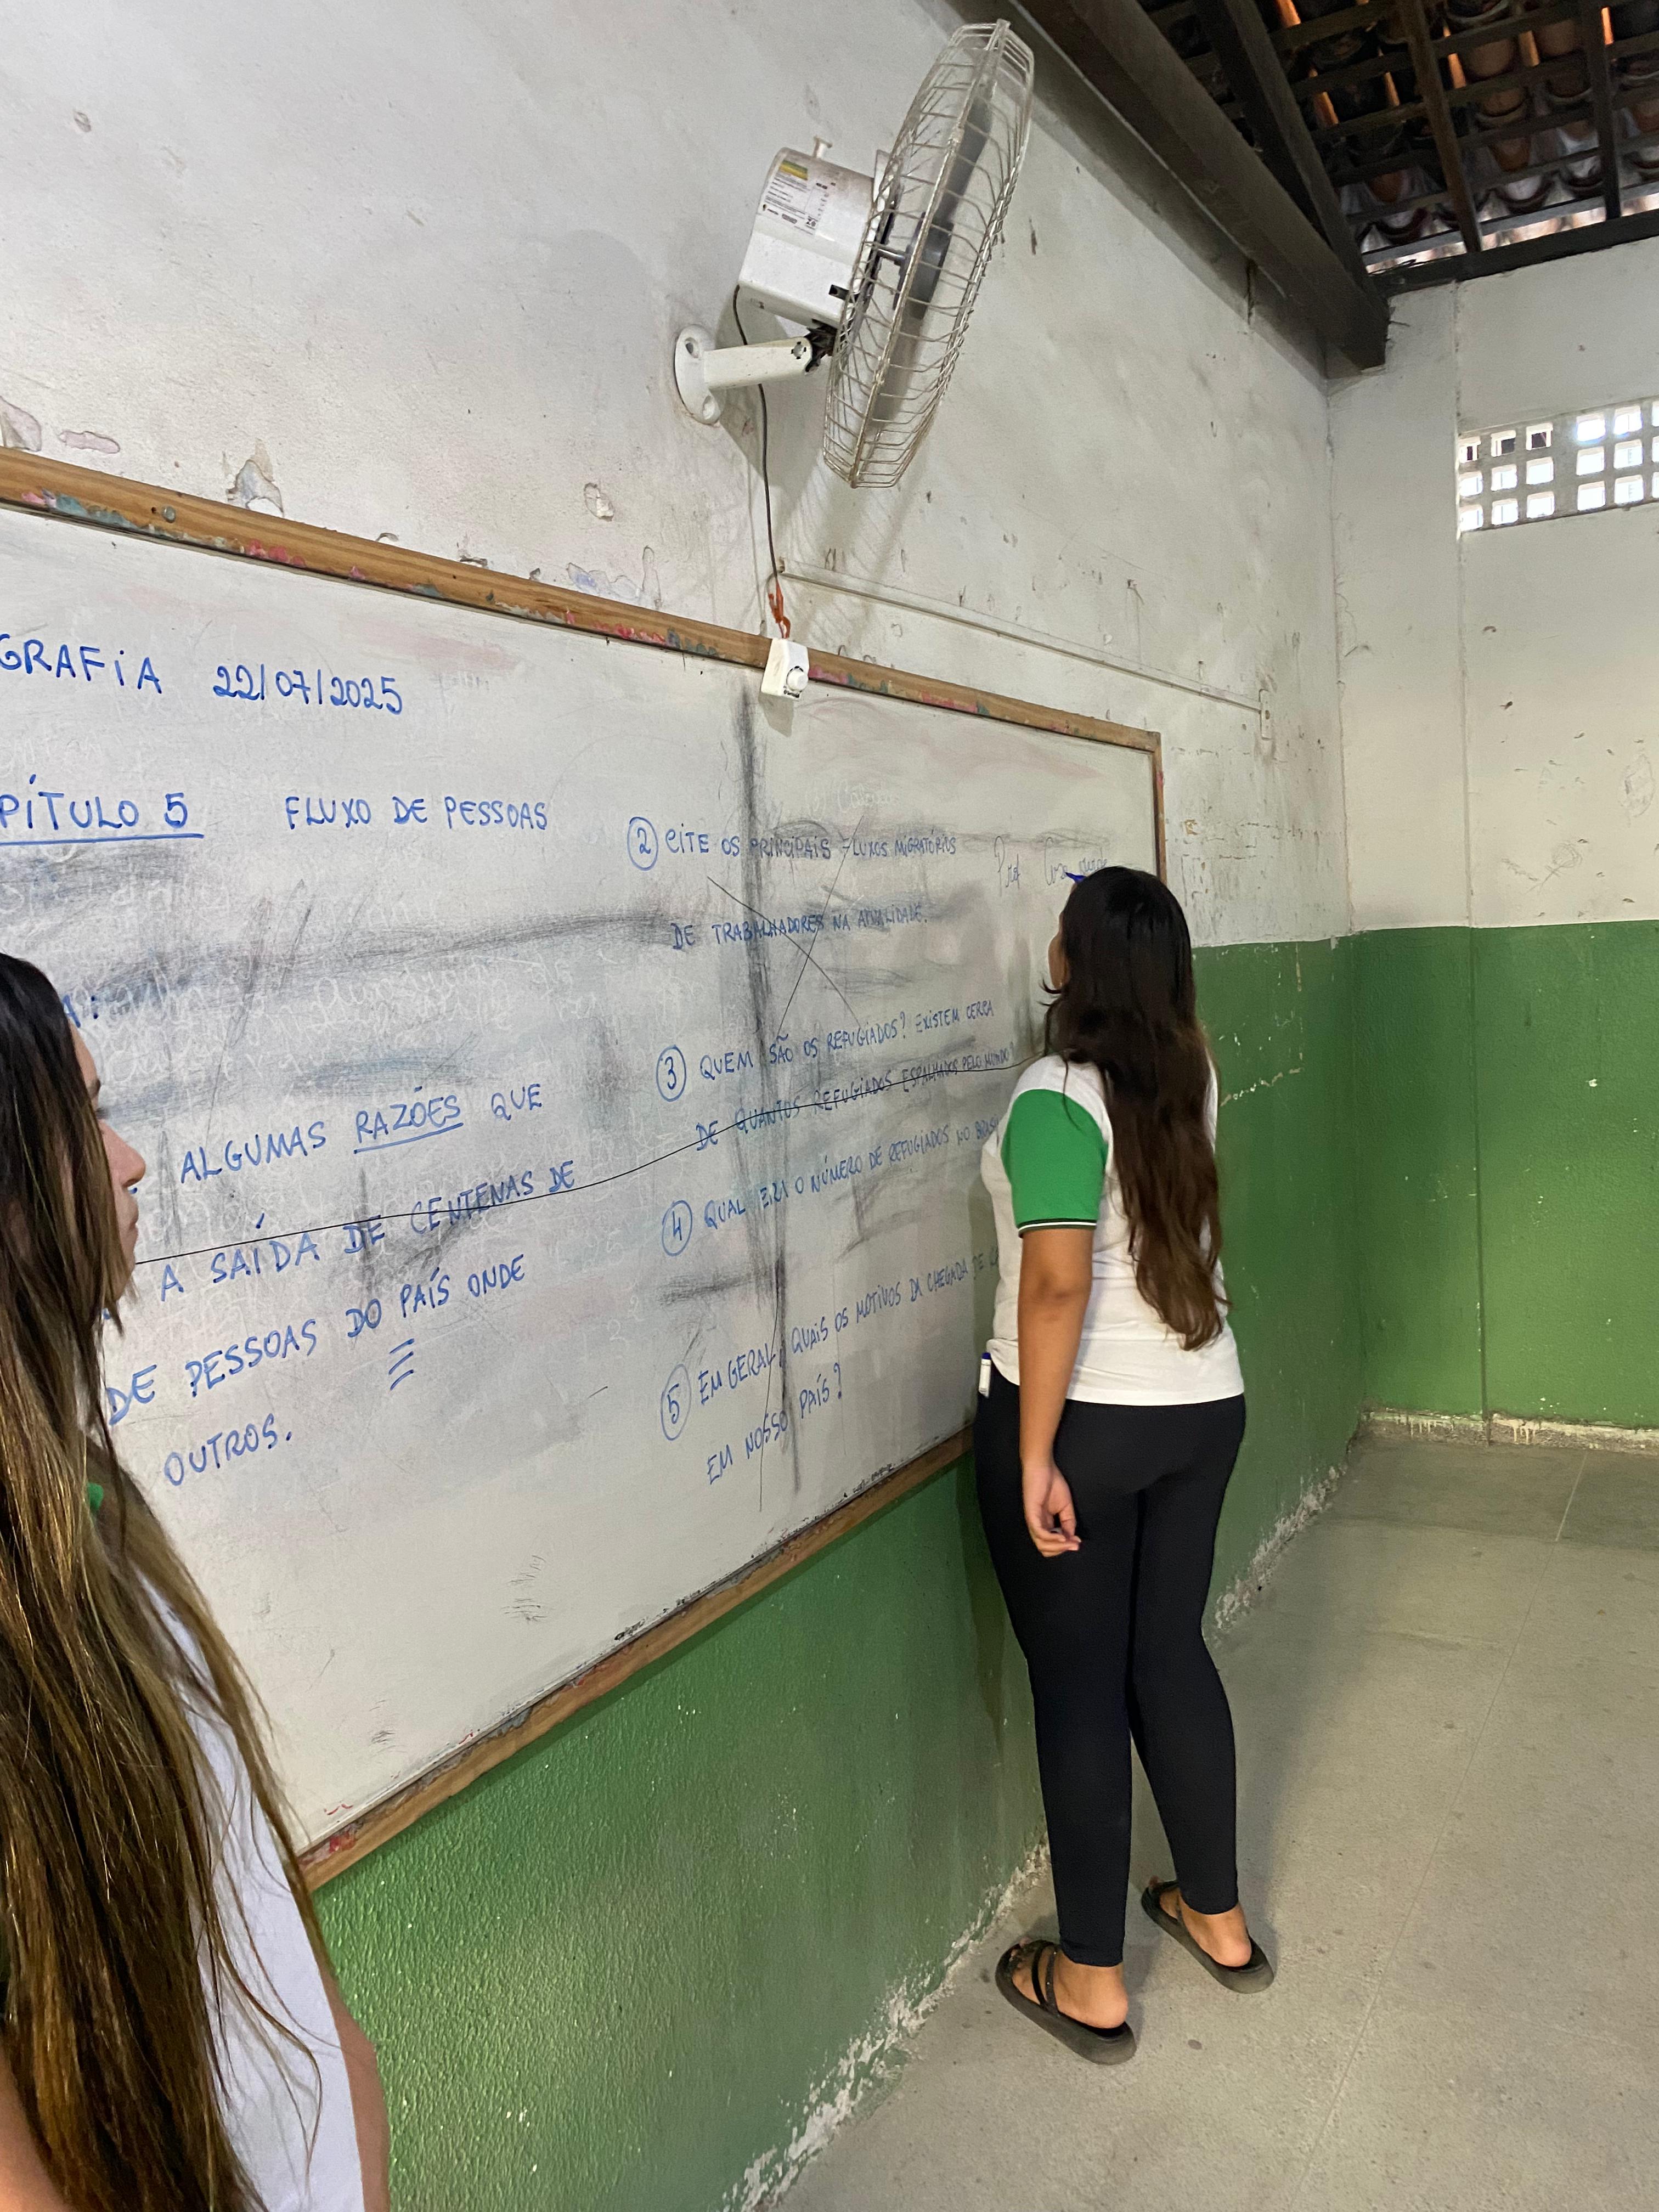 GRAFIA 22/07/2025
PÍTULO 5 FLUXO DE PESSOAS
A:
ALGUMAS RAZÕES QUE
A SAÍDA DE CENTENAS DE
DE PESSOAS DO PAÍS ONDE
OUTROS.
2 CITE OS PRINCIPAIS FLUXOS MIGRATÓRIOS
DE TRABALHADORES NA ATUALIDADE.
3 QUEM SÃO OS REFUGIADOS? EXISTEM CERCA
DE QUANTOS REFUGIADOS ESPALHADOS PELO MUNDO?
4 QUAL ERA O NÚMERO DE REFUGIADOS NO BRASI
5 EM GERAL, QUAIS OS MOTIVOS DA CHEGADA DE
EM NOSSO PAÍS?
Prof